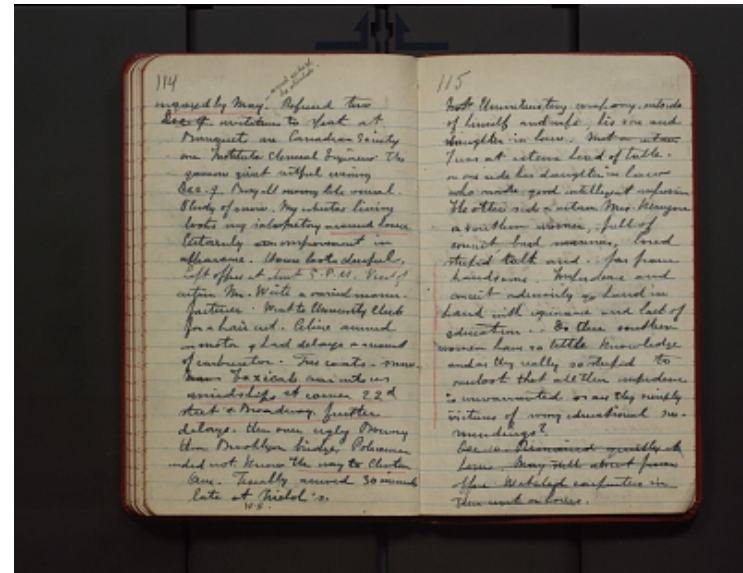 114
engaged by May. Refused two
Dec. 9. invitations to speak at
Banquet one Canadian Society
one Institute Chemical Engineers. The
Dec. 9. Busy all morning like usual.
Study of snow. My winter lining
looks very satisfactory around house
Certainly an improvement in
appearance. House looks cheerful.
Left office at 5 P.M. Visit of
certain Mr. White a varnish manu-
facturer. Went to University Club
for a hair cut. Celine arrived
in motor & had delays account
of carburetor. Two coats - snow
Taxicab runs into us
amidships at corner 22d
street & Broadway. Further
delays. Then over ugly Bowery
then Brooklyn bridge. Policemen
did not know the way to Clinton
Ave. Finally arrived 30 minutes
late at Nichols's.
115
Most Uninteresting company, outside
of himself and wife, his son and
daughter in law.
I was at extreme head of table.
on one side his daughter in law
who made good intelligent impression
The other side a certain Mrs.
a southern woman, full of
conceit, bad manners, loud
stupid talk and far from
handsome. Impudence and
conceit go hand in
hand with ignorance and lack of
education. Do these southern
women have so little knowledge
and are they really so stupid to
that all their impudence
is unwarranted or are they simply
victims of wrong educational sur-
roundings?
Dec. 10. Remained quietly at
home. May
office. Watched carpenters in
their work on boxes.